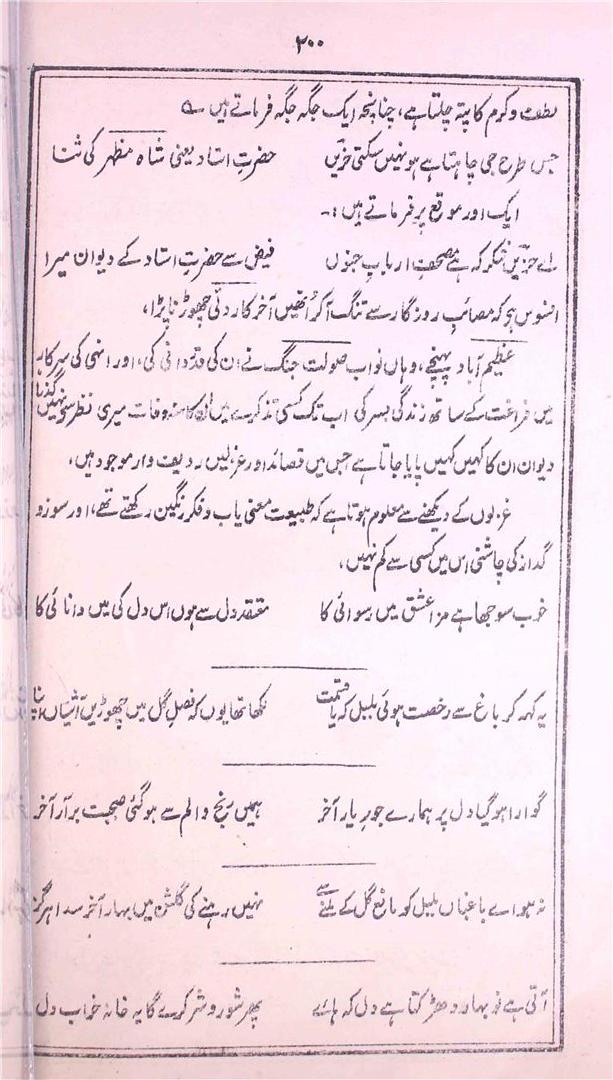 ۲۰۰
لطف و کرم کا پتہ چلتا ہے، چنانچہ ایک جگہ جگہ فرماتے ہیں ؎
جس طرح جی چاہتا ہے ہو نہیں سکتی حزیں حضرتِ استاد یعنی شاہ مظہر کی ثنا
ایک اور موقع پر فرماتے ہیں :۔
اے حزیں شکر کہ ہے مصحفِ اربابِ جنوں فیض سے حضرتِ استاد کے دیوان میرا
افسوس ہے کہ مصائبِ روزگار سے تنگ آکر اُنھیں آخرکار دلّی چھوڑنا پڑا،
عظیم آباد پہنچے، وہاں نواب صولت جنگ نے ان کی قدر دانی کی، اور انہی کی سرکار
میں فراغت کے ساتھ زندگی بسر کی اب تک کسی تذکرے میں ان کا سنہ وفات میری نظر سے نہیں گذرا
دیوان ان کا کہیں کہیں پایا جاتا ہے جس میں قصائد اور غزلیں ردیف وار موجود ہیں،
غزلوں کے دیکھنے سے معلوم ہوتا ہے کہ طبیعت معنی یاب و فکر رنگین رکھتے تھے، اور سوز و
گداز کی چاشنی اس میں کسی سے کم نہیں،
خوب سوجھا ہے مزا عشق میں رسوائی کا معتقد دل سے ہوں اس دل کی میں دانائی کا
یہ کہہ کر باغ سے رخصت ہوئی بلبل کہ یا قسمت لکھا تھا یوں کہ فصلِ گل میں چھوڑیں آشیاں اپنا
گوارا ہوگیا دل پر ہمارے جورِ یار آخر ہمیں رنج و الم سے ہوگئی صحبت برآر آخر
نہ ہو اے باغباں بلبل کو مانع گل کے ملنے سے نہیں رہنے کی گلشن میں بہار آخر سدا ہرگز
آتی ہے نو بہار دھڑکتا ہے دل کہ ہائے پھر شور و شر کرے گا یہ خانہ خراب دل